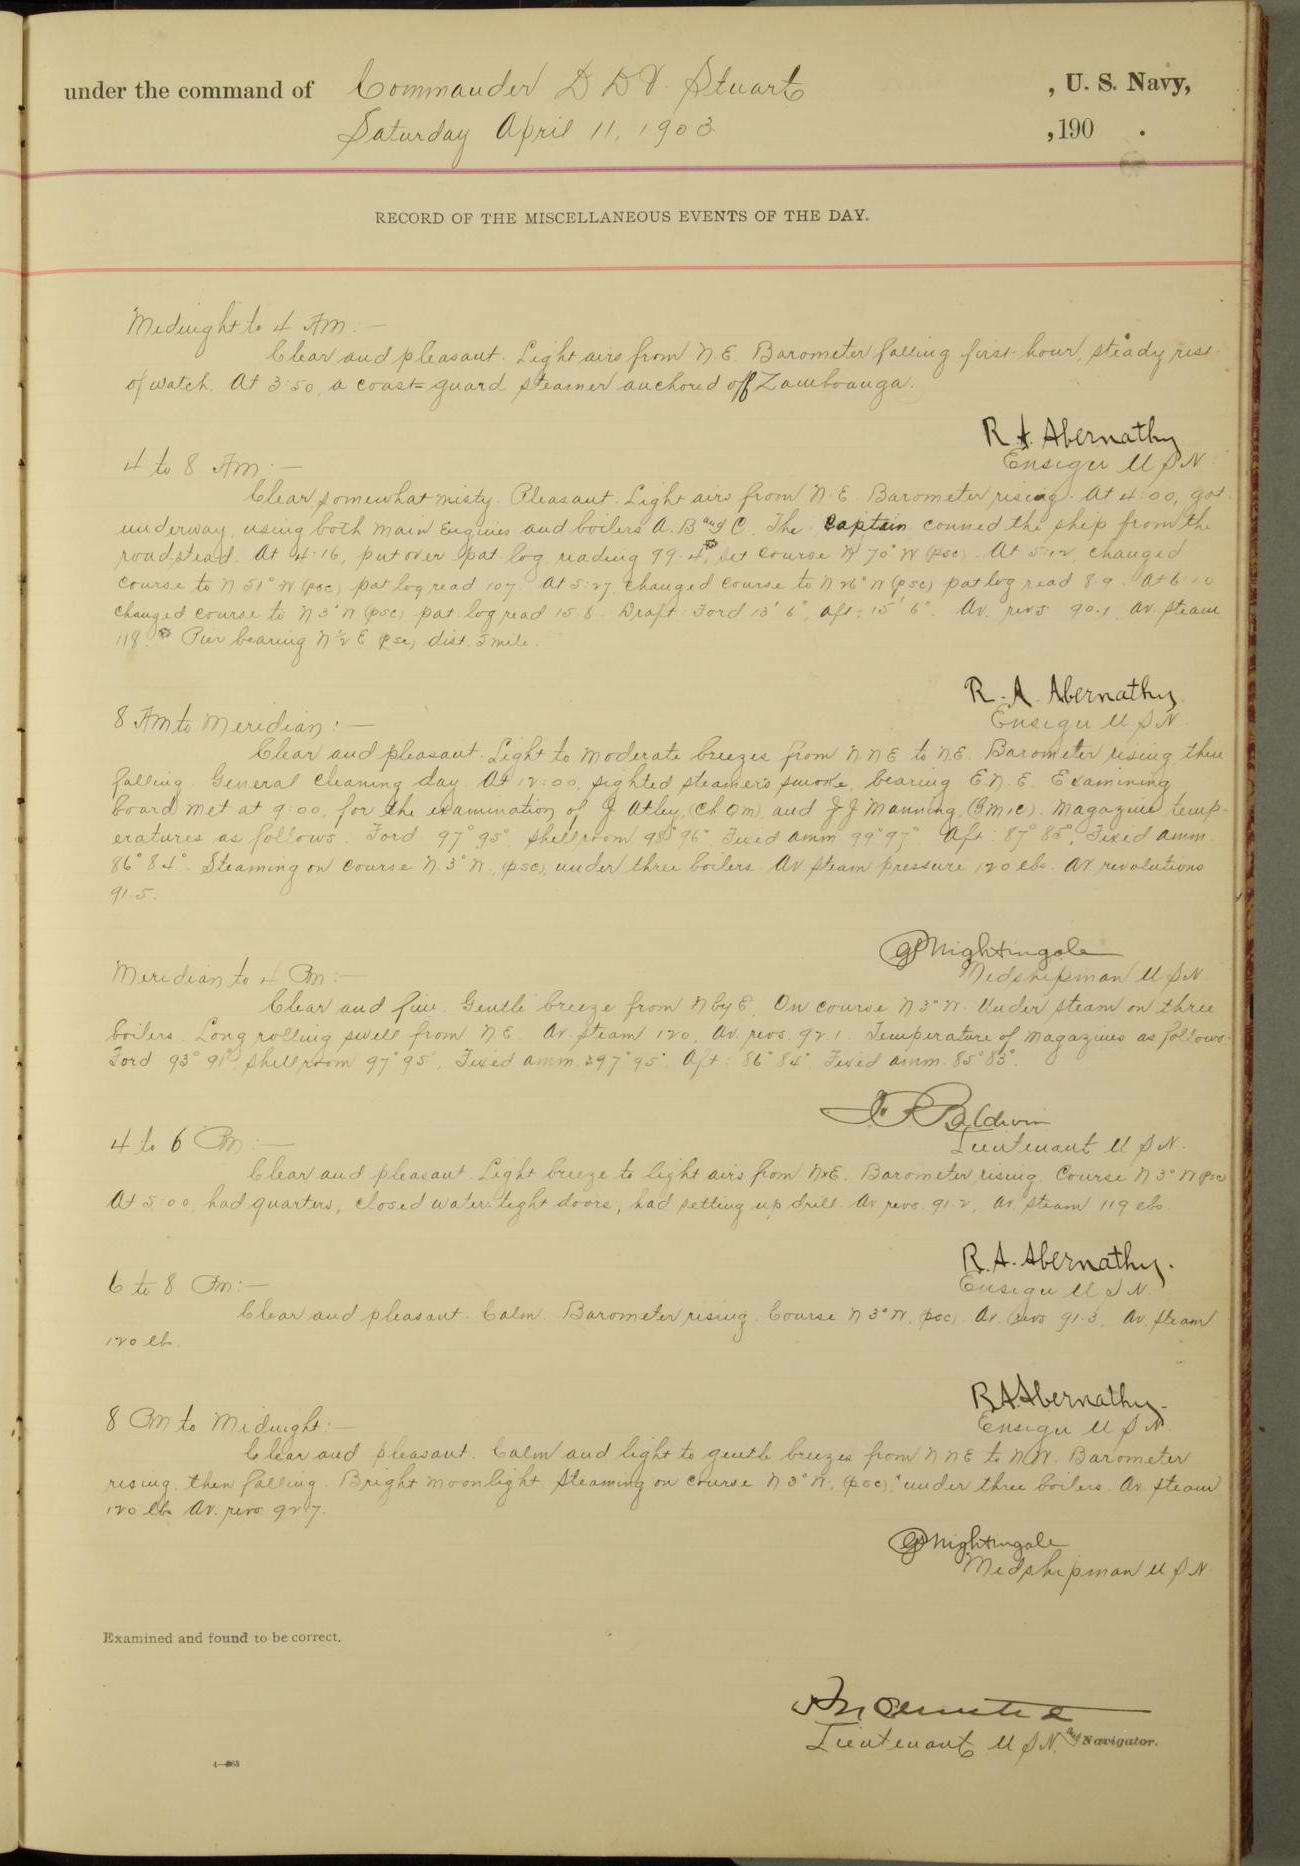 under the command of Commander D D V. Stuart , U. S. Navy,
Saturday April 11, 1903 , 190 .
RECORD OF THE MISCELLANEOUS EVENTS OF THE DAY.
Midnight to 4 AM:—
Clear and pleasant. Light airs from N.E. Barometer falling first hour, steady rest
of watch. At 3:50, a coast-guard steamer anchored off Zamboanga.
R A Abernathy
Ensign U S N.
4 to 8 AM:—
Clear somewhat misty. Pleasant. Light airs from N.E. Barometer rising. At 4:00, got
underway, using both main engines and boilers A. B and C. The Captain conned the ship from the
roadstead. At 4:16, put over pat log, reading 99.4, set course N 70° W (psc). At 5:12, changed
course to N 51° W (psc) pat log read 107. At 5:27, changed course to N 26° W (psc) pat log read 8.9. At 6:10
changed course to N 3° W (psc) pat. log read 15.6. Draft: Ford 13' 6", aft: 15' 6". Av. revs 90.1, Av. steam
118. Pier bearing N ½ E (psc) dist. mile.
R. A. Abernathy
Ensign U S N.
8 AM to Meridian:—
Clear and pleasant. Light to moderate breezes from N.N.E to N.E. Barometer rising then
falling. General cleaning day. At 12:00, sighted steamer's smoke, bearing E.N.E. Examining
board met at 9:00, for the examination of J Atley, (Ch Q m) and J J Manning, (G m 1c). Magazine temp-
eratures as follows: Ford 97° 95° shell room 98° 96° Fixed amm 99° 97° Aft: 87° 85°, Fixed amm.
86° 84°. Steaming on course N. 3° W., (psc), under three boilers. Av. steam pressure 120 lbs. Av. revolutions
91.5.
Nightingale
Midshipman U S N.
Meridian to 4 PM:—
Clear and fine. Gentle breeze from N by E. On course N 3° W. Under steam on three
boilers. Long rolling swell from N.E. Av. steam 120, Av. revs. 92.1. Temperature of magazines as follows:
Ford 93° 91° shell room 97° 95°, Fixed amm. 97° 95°. Aft: 86° 84°. Fixed amm. 85° 83°.
Baldwin
Lieutenant U S N.
4 to 6 PM:—
Clear and pleasant. Light breeze to light airs from NxE. Barometer rising. Course N 3° W (psc)
At 5:00, had quarters, closed water-tight doors, had setting up drill. Av. revs. 91.2, Av. steam 119 lbs.
R. A. Abernathy.
Ensign U S N.
6 to 8 PM:—
Clear and pleasant. Calm. Barometer rising. Course N 3° W. (psc). Av. revs 91.3, Av. steam
120 lbs.
R A Abernathy.
Ensign U S N.
8 PM to Midnight:—
Clear and pleasant. Calm and light to gentle breezes from N N E to N W. Barometer
rising, then falling. Bright moonlight. Steaming on course N 3° W., (psc), under three boilers. Av. steam
120 lbs. Av. revs 92.7.
Nightingale
Midshipman U S N
Examined and found to be correct.
Lieutenant U S N. and Navigator.